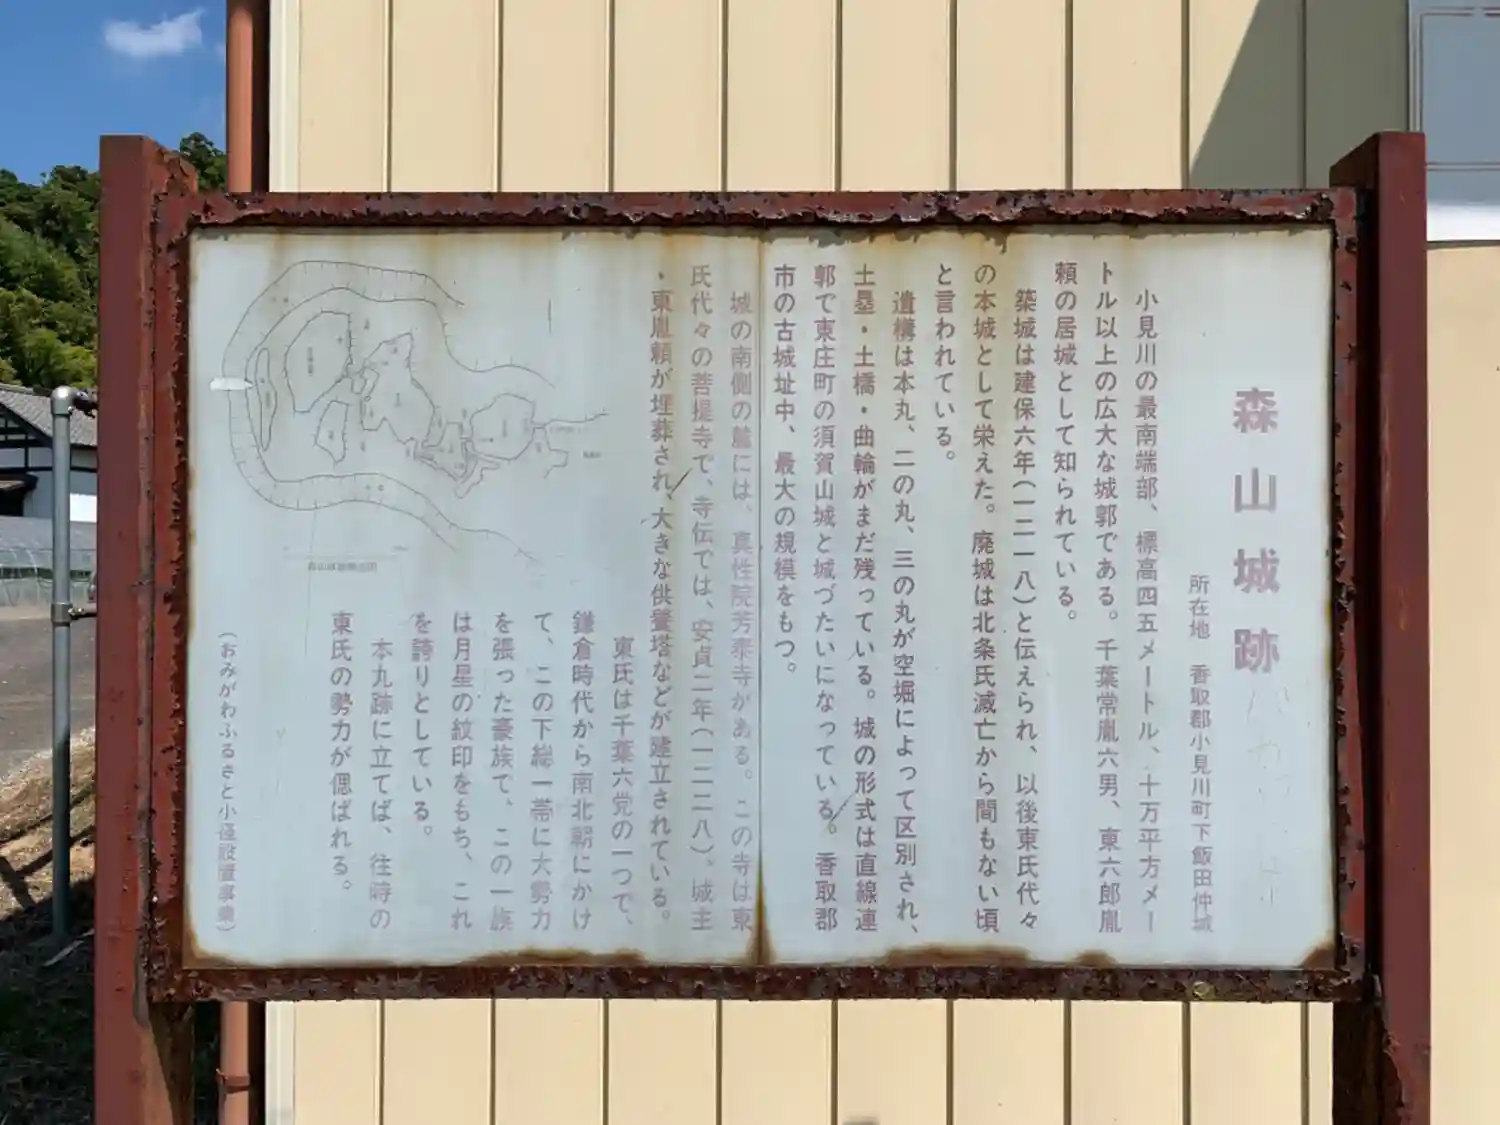 森山城跡
所在地 香取郡小見川町下飯田仲城
小見川の最南端部、標高四五メートル、十万平方メー
トル以上の広大な城郭である。千葉常胤六男、東六郎胤
頼の居城として知られている。
築城は建保六年(一二一八)と伝えられ、以後東氏代々
の本城として栄えた。廃城は北条氏滅亡から間もない頃
と言われている。
遺構は本丸、二の丸、三の丸が空堀によって区別され、
土塁・土橋・曲輪がまだ残っている。城の形式は直線連
郭で東庄町の須賀山城と城づたいになっている。香取郡
市の古城址中、最大の規模をもつ。
城の南側の麓には、真性院芳泰寺がある。この寺は東
氏代々の菩提寺で、寺伝では、安貞二年(一二二八)、城主
・東胤頼が埋葬され、大きな供養塔などが建立されている。
東氏は千葉六党の一つで、
鎌倉時代から南北朝にかけ
て、この下総一帯に大勢力
を張った豪族で、この一族
は月星の紋印をもち、これ
を誇りとしている。
本丸跡に立てば、往時の
東氏の勢力が偲ばれる。
(おみがわふるさと小径設置事業)